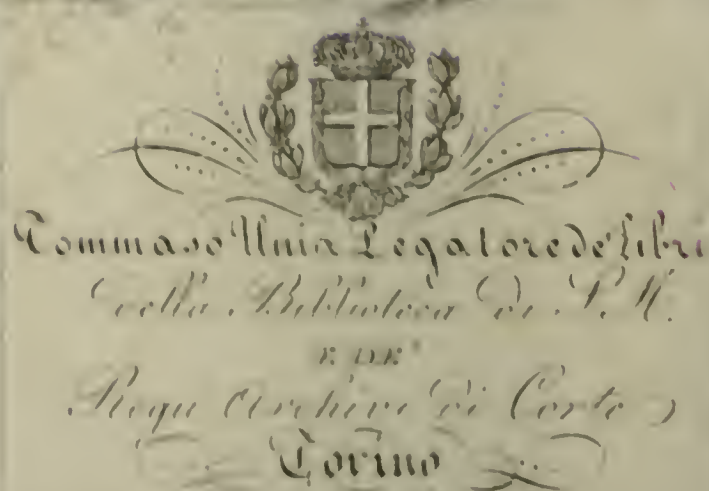 Tommaso Unia Legatore de' Libri
Della Biblioteca Di S. M.
E DE'
Regii Archivi Di Corte
Torino